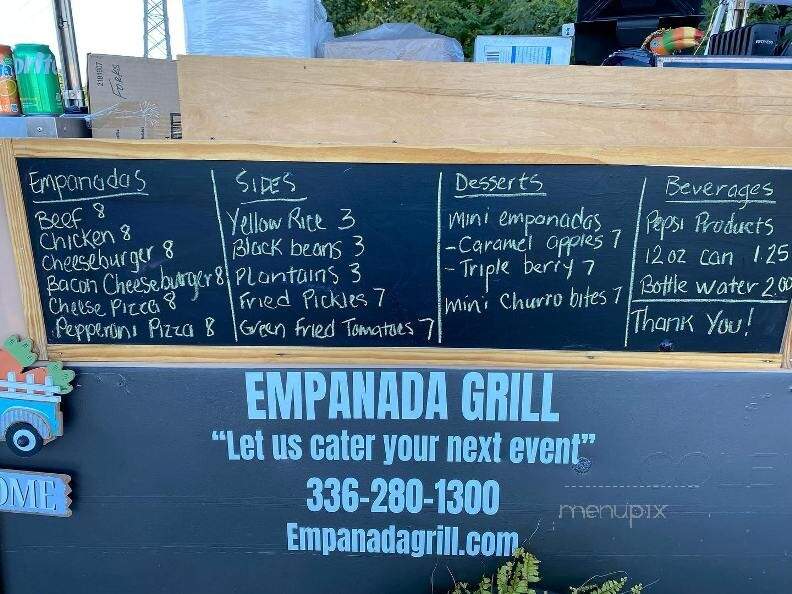 2181937
Forks
Empanadas
Beef 8
Chicken 8
Cheeseburger 8
Bacon Cheeseburger 8
Cheese Pizza 8
Pepperoni Pizza 8
SIDES
Yellow Rice 3
Black beans 3
Plantains 3
Fried Pickles 7
Green Fried Tomatoes 7
Desserts
Mini empanadas
-Caramel apples 7
-Triple berry 7
Mini Churro bites 7
Beverages
Pepsi Products
12 oz can 1.25
Bottle water 2.00
Thank You!
EMPANADA GRILL
“Let us cater your next event”
336-280-1300
Empanadagrill.com
OME
menupix